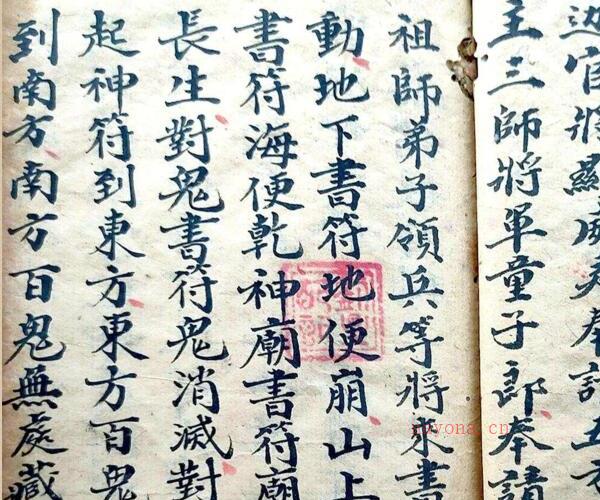 主三師將軍童子郎奉請
祖師弟子領兵等將來書
動地下書符地便崩山上
書符海便乾神廟書符廟
長生對鬼書符鬼消滅對
起神符到東方東方百鬼
到南方南方百鬼無處藏